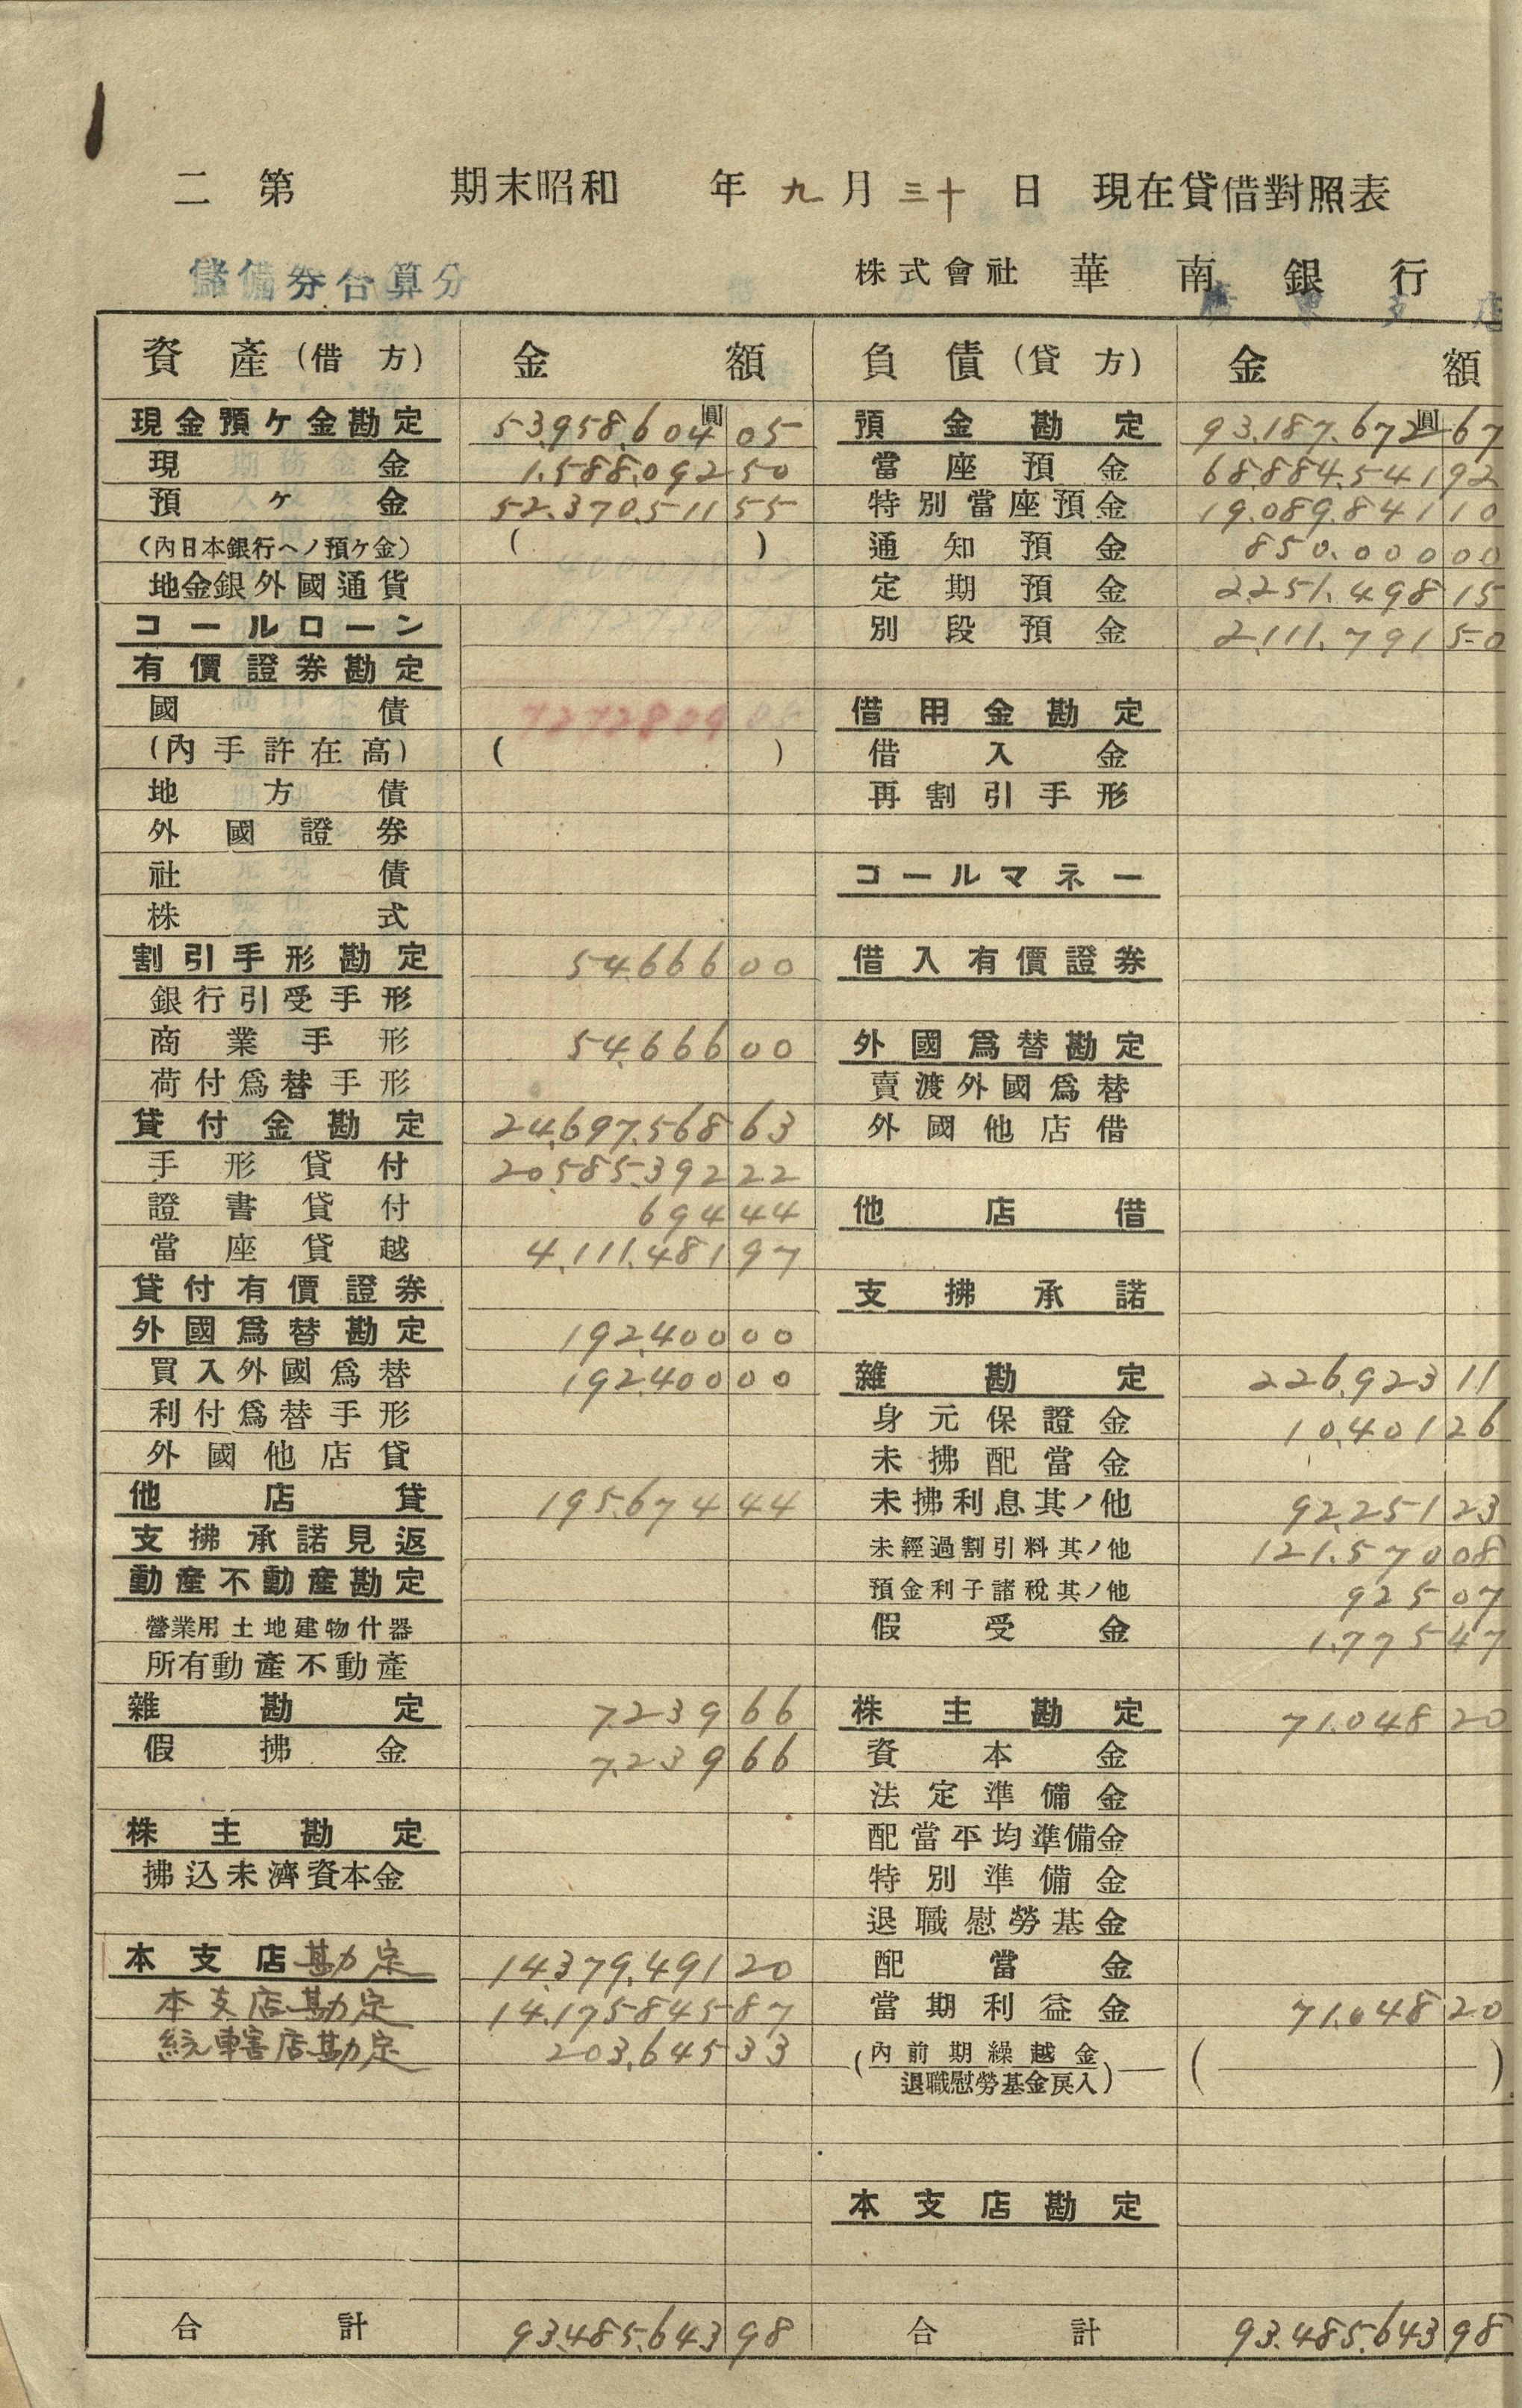 二 第 期末昭和 年 九 月 三十 日 現在貸借對照表
儲備券合算分 株式會社 華南銀行
廣東支店
資產(借方) 金額 負債(貸方) 金額
現金預ケ金勘定 53,958,604圓05 預金勘定 93,187,672圓67
現金 1,588,092 50 當座預金 68,884,541 92
預ケ金 52,370,511 55 特別當座預金 19,089,841 10
(內日本銀行ヘノ預ケ金) ( ) 通知預金 850,000 00
地金銀外國通貨 定期預金 2,251,498 15
コールローン 別段預金 2,111,791 50
有價證券勘定
國債 7272809 08 借用金勘定
(內手許在高) ( ) 借入金
地方債 再割引手形
外國證券
社債 コールマネー
株式
割引手形勘定 54,666 00 借入有價證券
銀行引受手形
商業手形 54,666 00 外國爲替勘定
荷付爲替手形 賣渡外國爲替
貸付金勘定 24,697,568 63 外國他店借
手形貸付 20,585,392 22
證書貸付 694 44 他店借
當座貸越 4,111,481 97
貸付有價證券 支拂承諾
外國爲替勘定 192,400 00
買入外國爲替 192,400 00 雜勘定 226,923 11
利付爲替手形 身元保證金 10,401 26
外國他店貸 未拂配當金
他店貸 195,674 44 未拂利息其ノ他 92,251 23
支拂承諾見返 未經過割引料其ノ他 121,570 08
動產不動產勘定 預金利子諸稅其ノ他 925 07
營業用土地建物什器 假受金 1,775 47
所有動產不動產
雜勘定 7,239 66 株主勘定 71,048 20
假拂金 7,239 66 資本金
法定準備金
株主勘定 配當平均準備金
拂込未濟資本金 特別準備金
退職慰勞基金
本支店勘定 14,379,491 20 配當金
本支店勘定 14,175,845 87 當期利益金 71,048 20
統轄店勘定 203,645 33 (內前期繰越金 退職慰勞基金戾入) ( )
本支店勘定
合計 93,485,643 98 合計 93,485,643 98